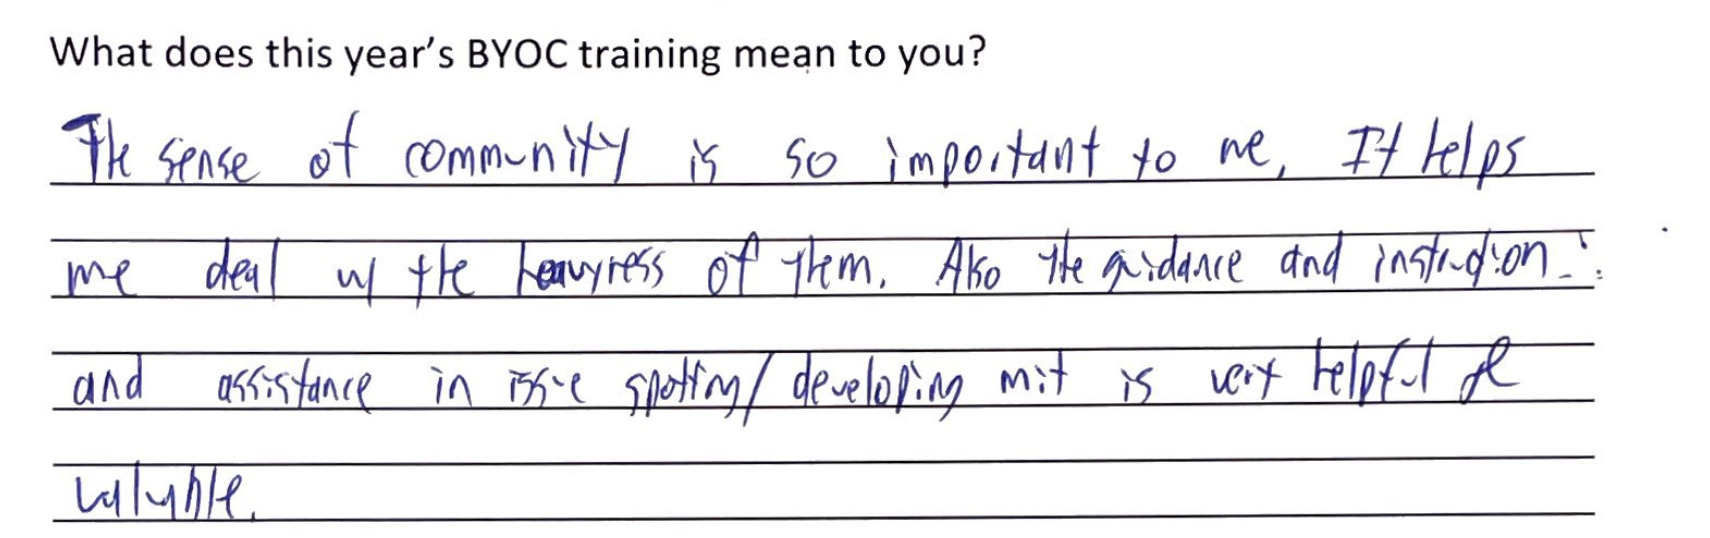 What does this year's BYOC training mean to you?
The sense of community is so important to me, It helps
me deal w/ the heavyness of them. Also the guidance and instruction
and assistance in issue spotting/developing mit is very helpful &
valuable.